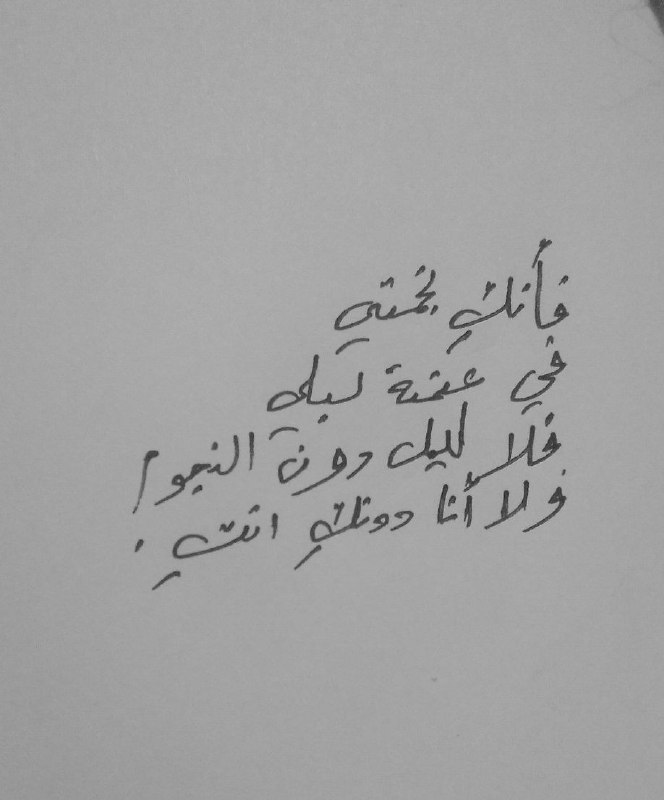 فأنكِ نجمتي
في عتمة ليلي
فلا ليل دون النجوم
ولا أنا دونكِ انتِ .